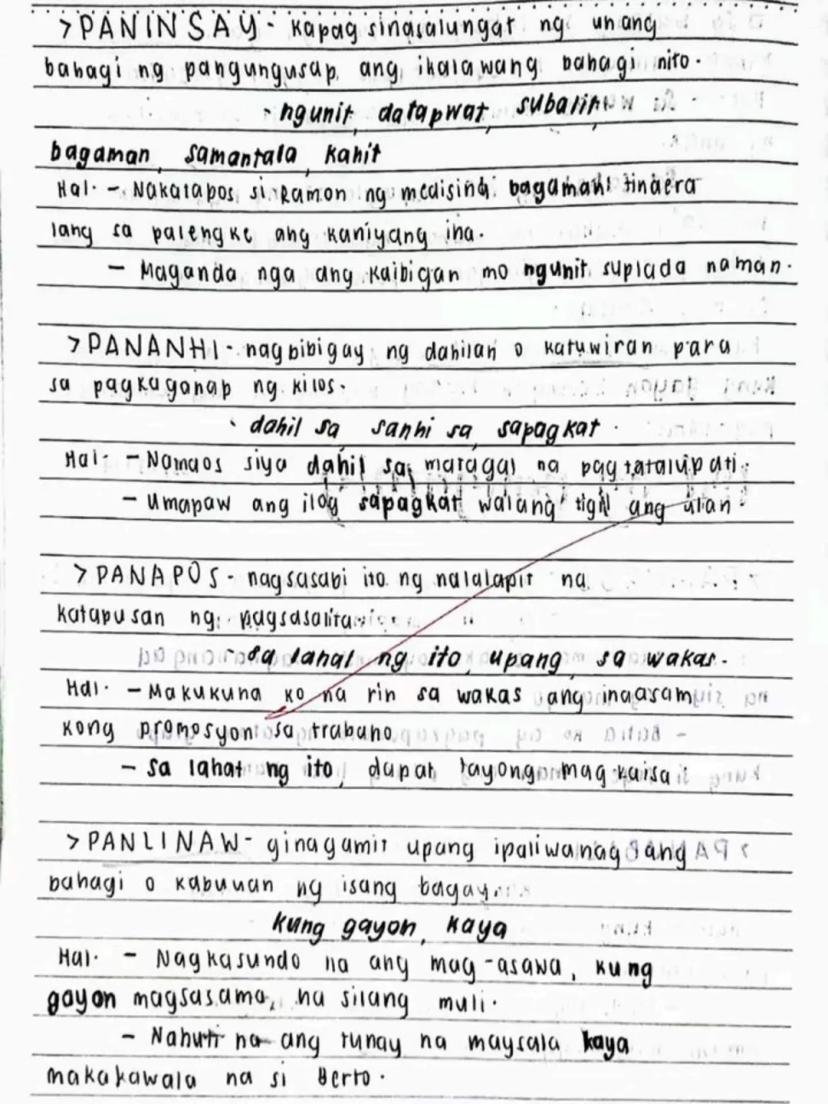 >PANINSAY- kapag sinasalungat ng unang
bahagi ng pangungusap ang ikalawang bahagi nito.
- ngunit, datapwat, subalit,
bagaman, samantala, kahit
Hal. - Nakatapos si Ramon ng medisina bagamant tindera
lang sa palengke ang kaniyang ina.
- Maganda nga ang kaibigan mo ngunit suplada naman.
>PANANHI- nagbibigay ng dahilan o katuwiran para
sa pagkaganap ng kilos.
- dahil sa, sanhi sa, sapagkat
Hal. - Namaos siya dahil sa matagal na pagtatalupati.
- Umapaw ang ilog sapagkat walang tigil ang ulan.
>PANAPOS- nagsasabi ito ng nalalapit na
katapusan ng pagsasalita.
- sa lahat ng ito, upang, sa wakas.
Hal. - Makukuha ko na rin sa wakas ang inaasam
kong promosyon sa trabaho
- sa lahat ng ito, dapat tayong magkaisa.
>PANLINAW- ginagamit upang ipaliwanag ang
bahagi o kabuuan ng isang bagay.
kung gayon, kaya
Hal. - Nagkasundo na ang mag-asawa, kung
gayon magsasama na silang muli.
- Nahuti na ang tunay na maysala kaya
makakawala na si Berto.